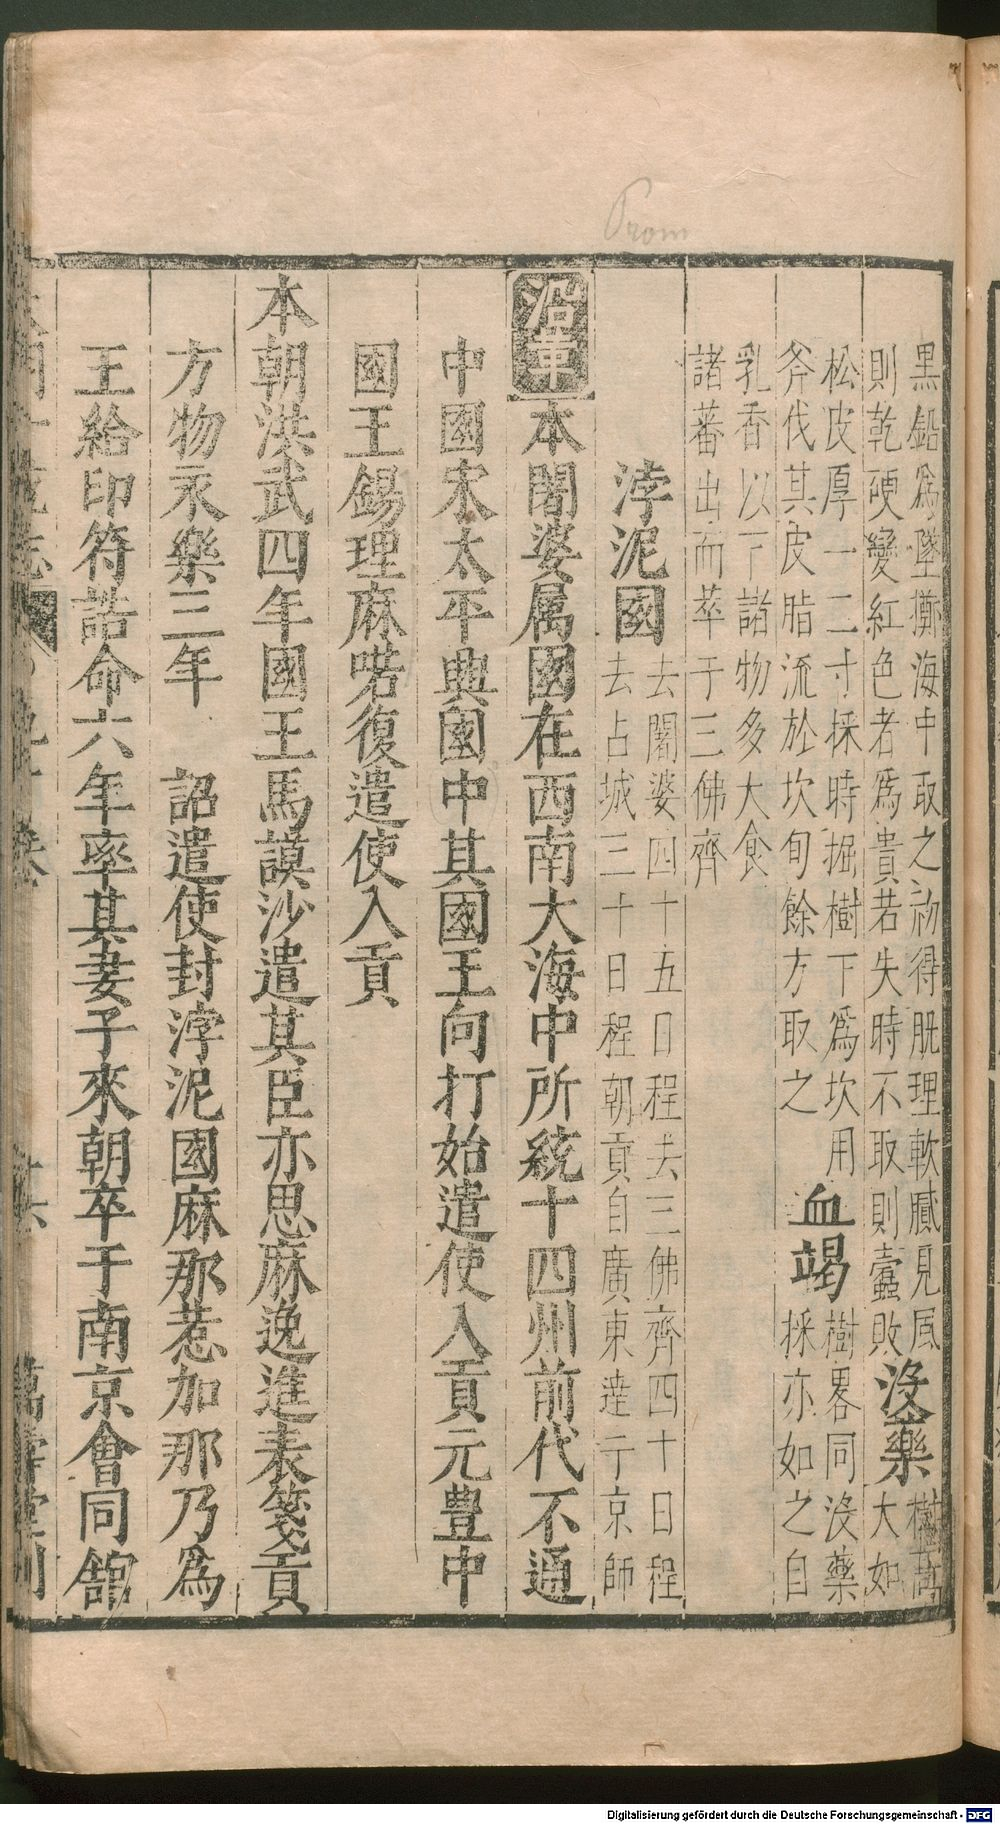 黑鉛爲墜擲海中取之初得肌理軟膩見風
則乾硬變紅色者爲貴若失時不取則蠹敗
没藥
樹高
大如
松皮厚一二寸採時掘樹下爲坎用
斧伐其皮脂流於坎旬餘方取之
血竭
樹畧同没藥
採亦如之自
乳香以下諸物多大食
諸蕃出而萃于三佛齊
浡泥國
去闍婆四十五日程去三佛齊四十日程
去占城三十日程朝貢自廣東達于京師
沿革
本闍婆属國在西南大海中所統十四州前代不通
中國宋太平興國中其國王向打始遣使入貢元豊中
國王錫理麻喏復遣使入貢
本朝洪武四年國王馬謨沙遣其臣亦思麻逸進表箋貢
方物永樂三年 詔遣使封浡泥國麻那惹加那乃爲
王給印符誥命六年率其妻子來朝卒于南京會同舘
Digitalisierung gefördert durch die Deutsche Forschungsgemeinschaft - DFG